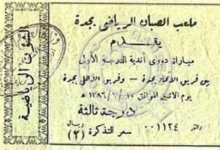 ملعب الصبان الرياضي بجدة
يقدم
مباراة دوري أندية الدرجة الأولى
بين فريق الاتحاد بجدة - وفريق الأهلي بجدة
يوم الاثنين الموافق
درجة ثالثة
٠٠١١٢٤ سعر التذكرة (٢)
شئون الرياضية